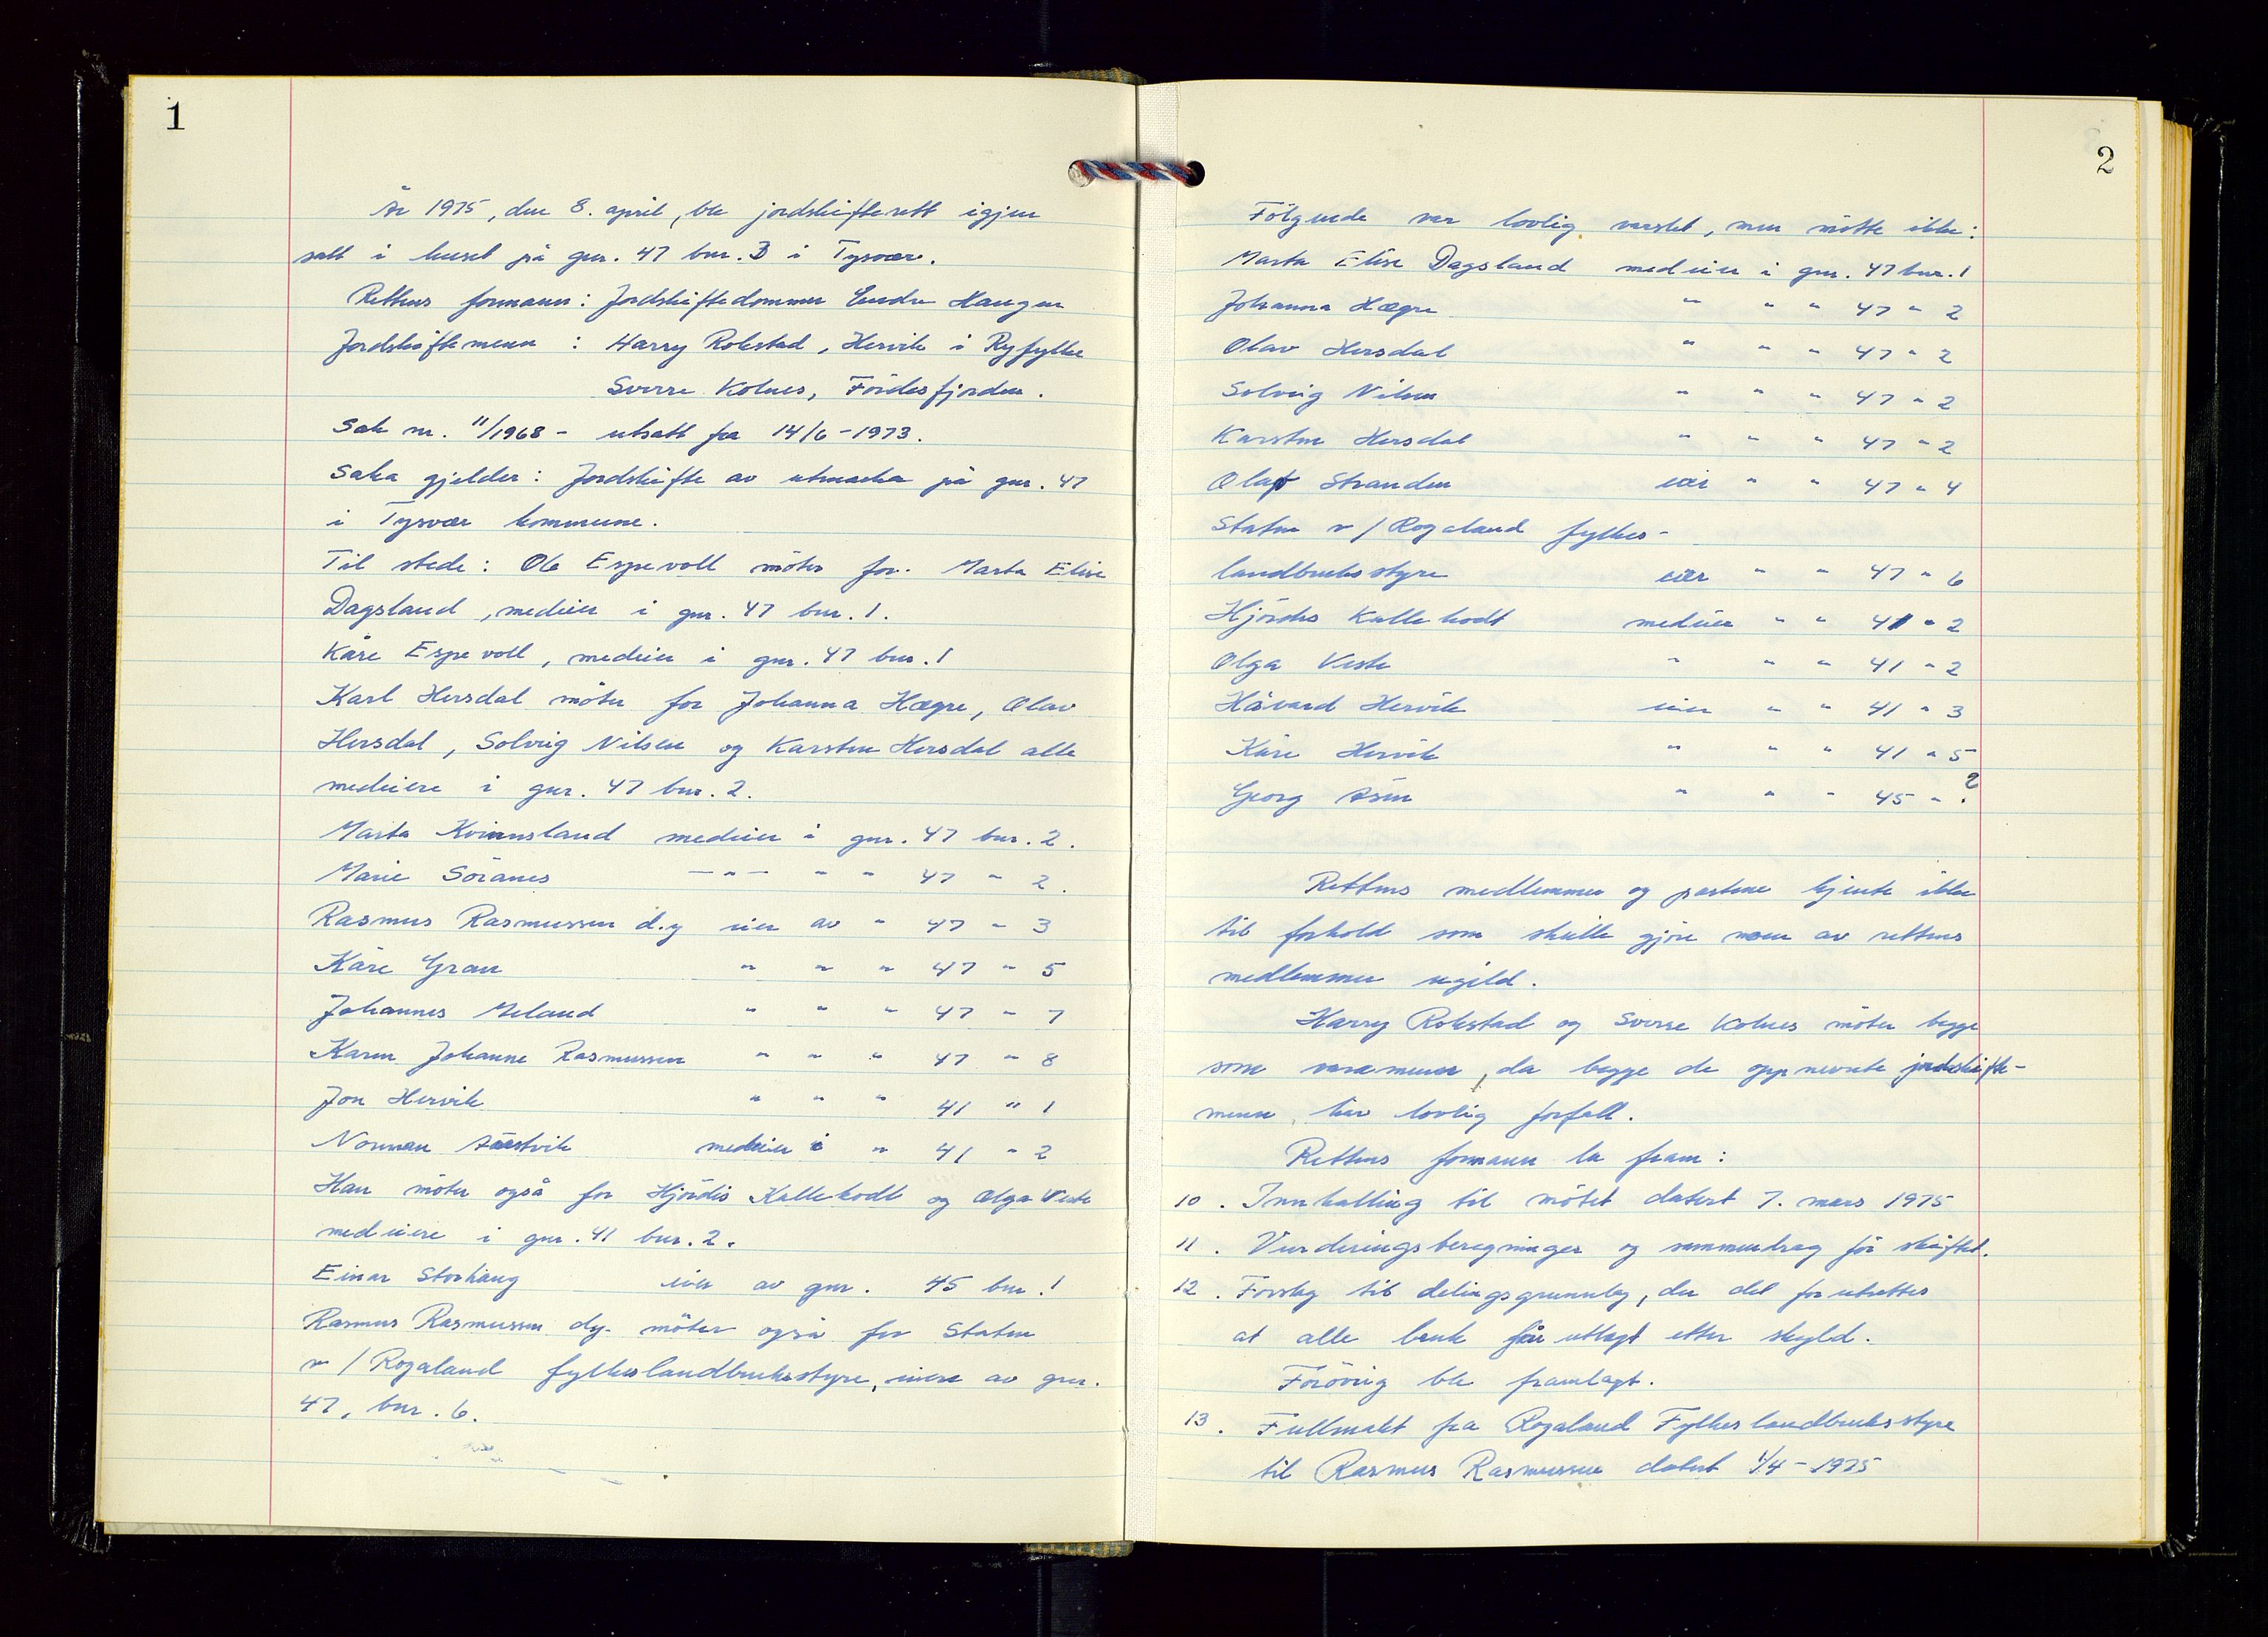 1
År 1975, den 8. april, ble jordskifterett igjen
satt i huset på gnr. 47 bnr. 3 i Tysvær.
Rettens formann: Jordskiftedommer Endre Haugen
Jordskiftemenn : Harry Rokstad, Hervik i Ryfylke
Sverre Kolnes, Fördesfjorden.
Sak nr. 11/1968 - utsatt fra 14/6-1973.
Saka gjelder: Jordskifte av utmarka på gnr. 47
i Tysvær kommune.
Til stede: Ole Espevoll möter for Marta Elise
Dagsland, medeier i gnr. 47 bnr. 1.
Kåre Espevoll, medeier i gnr. 47 bnr. 1
Karl Hersdal möter for Johanna Hægre, Olav
Hersdal, Solveig Nilsen og Karsten Hersdal alle
medeiere i gnr. 47 bnr. 2.
Marta Kvinnsland medeier i gnr. 47 bnr. 2.
Marie Söranes —"— " " 47 " 2.
Rasmus Rasmussen d.y eier av " 47 " 3
Kåre Gran " " " 47 " 5
Johannes Meland " " " 47 " 7
Karen Johanne Rasmussen " " " 47 " 8
Jon Hervik " " " 41 " 1
Norman medeier i " 41 " 2
Han möter også for Hjördis Kallekodt og Olga Veste
medeiere i gnr. 41 bnr. 2.
Einar Storhaug eier av gnr. 45 bnr. 1
Rasmus Rasmussen dy. möter også for Staten
v/ Rogaland fylkeslandbruksstyre, eiere av gnr.
47, bnr. 6.
2
Fölgende var lovlig varslet, men mötte ikke:
Marta Elise Dagsland medeier i gnr. 47 bnr. 1
Johanna Hægre " " " 47 " 2
Olav Hersdal " " " 47 " 2
Solveig Nilsen " " " 47 " 2
Karsten Hersdal " " " 47 " 2
Olaf Stranden eier " " 47 " 4
Staten v/ Rogaland fylkes-
landbruksstyre eier " " 47 " 6
Hjördis Kallekodt medeier " " 41 " 2
Olga Veste " " " 41 " 2
Håvard Hervik eier " " 41 " 3
Kåre Hervik " " " 41 " 5
Georg " " " 45 " ?
Rettens medlemmer og partene kjente ikke
til forhold som skulle gjöre noen av rettens
medlemmer ugild.
Harry Rokstad og Sverre Kolnes möter begge
som varamenn, da begge de oppnevnte jordskifte-
menn har lovlig forfall.
Rettens formann la fram:
10. Innkalling til mötet datert 7. mars 1975
11. Verderingsberegninger og sammendrag för skiftet.
12. Forslag til delingsgrunnlag, der det forutsettes
at alle bruk får utlagt etter skyld.
Forövrig ble framlagt.
13. Fullmakt fra Rogaland Fylkeslandbruksstyre
til Rasmus Rasmussen datert 1/4-1975